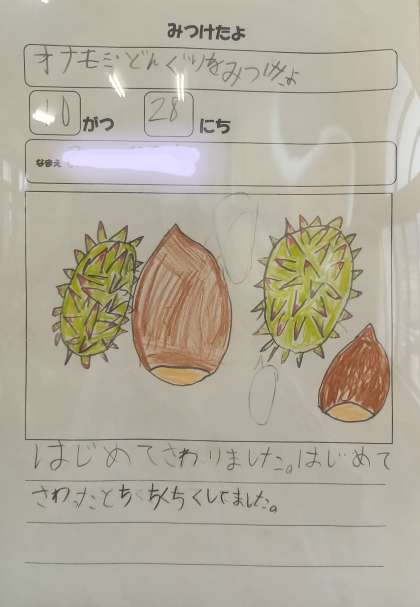 みつけたよ
オナモミ・どんぐりをみつけたよ
10がつ 28にち
なまえ
はじめてさわりました。はじめて
さわったとちくちくしてました。